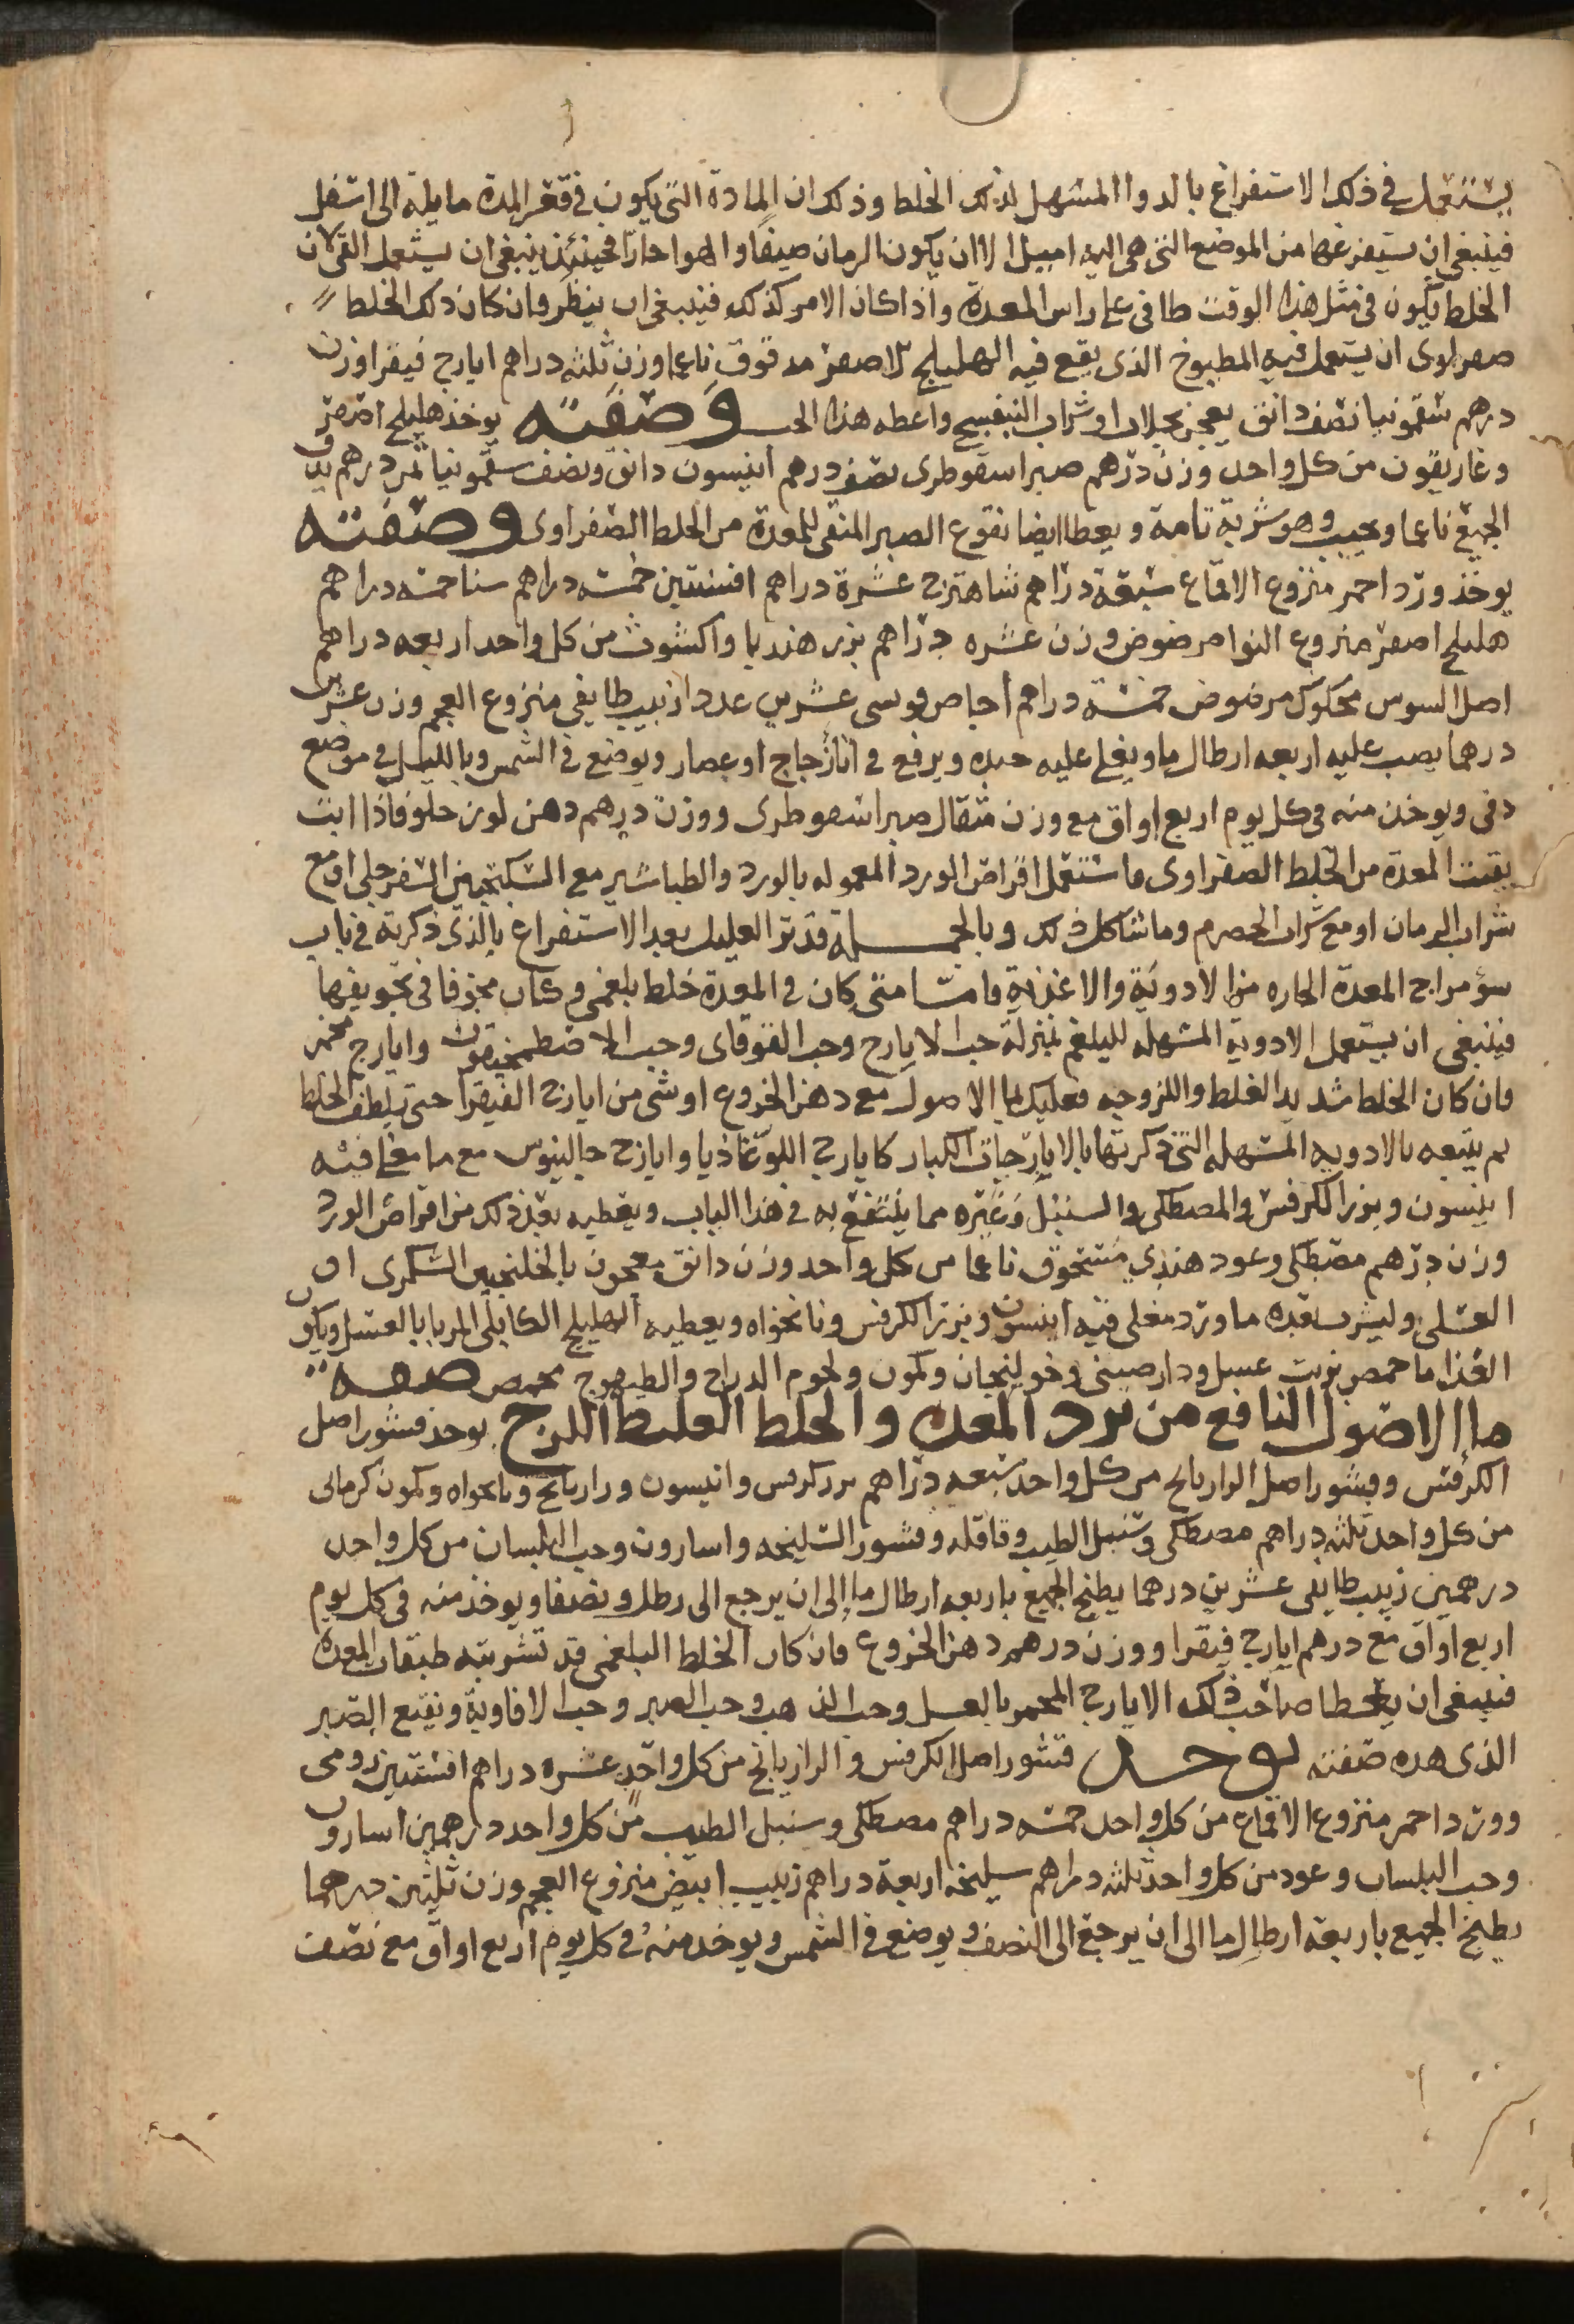 يستعمل في ذلك الاستفراغ بالدوا المسهل لذلك الخلط وذلك ان المادة التي يكون في قعر المدة مايلة الى اسفل
فينبغي ان يستفرغها من الموضع التي هي اليه اميل الا ان يكون الزمان صيفا والهوا حارا فحينئذ ينبغي ان يستعمل القي لان
الخلط يكون في مثل هذا الوقت طافي على راس المعدة واذا كان الامر كذلك فينبغي ان ينظر فان كان ذلك الخلط
صفراوى ان يستعمل فيه المطبوخ الذى يقع فيه الهليلج الاصفر مدقوق ناعما وزن ثلثه دراهم ايارج فيقرا وزن
درهم سقمونيا نصف دانق يعجن بجلاب او شراب البنفسج واعطه هذا الحب وصفته يوخذ هليلج اصفر
وغاريقون من كل واحد وزن درهم صبر اسقوطرى نصف درهم انيسون دانق ونصف سقمونيا ثمن درهم يدق
الجميع ناعما ويحبب وهو شربة تامة ويعطا ايضا نقوع الصبر المنقى للمعدة من الخلط الصفراوى وصفته
يوخذ ورد احمر منزوع الاقماع سبعة دراهم شاهترج عشرة دراهم افسنتين خمسه دراهم سنا خمسه دراهم
هليلج اصفر منزوع النوا مرضوض وزن عشره دراهم بزر هندبا واكشوث من كل واحد اربعه دراهم
اصل السوس محكوك مرضوض خمسة دراهم اجاص قومسى عشرين عددا زبيب طايفي منزوع العجم وزن عشرين
درهما يصب عليه اربعه ارطال ما ويغلى عليه جيده ويرفع في انا زجاج او عصار ويوضع في الشمس وبالليل في موضع
دفى ويوخذ منه في كل يوم اربع اواق مع وزن مثقال صبر اسقوطرى ووزن درهم دهن لوز حلو فاذا انت
نقيت المعدة من الخلط الصفراوى فاستعمل اقراص الورد المعموله بالورد والطباشير مع السكنجبين السفرجلي او مع
شراب الرمان او مع شراب الحصرم وما شاكل ذلك وبالجمله فدبر العليل بعد الاستفراغ بالذى ذكرته في باب
سؤ مزاج المعدة الحاره من الادوية والاغذية فامّا متى كان في المعدة خلط بلغمي وكان مجوفا في تجويفها
فينبغى ان يستعمل الادوية المسهله للبلغم بمنزلة حب الايارج وحب القوقاى وحب الاصطمخيقون وايارج مخمر
فان كان الخلط شديد الغلظ واللزوجه فعليك بما الاصول مع دهن الخروع او شى من ايارج الفيقرا حتى يلطف الخلط
ثم يتبعه بالادويه المسهله التي ذكرتها بالايارجات الكبار كايارج اللوغاذيا وايارج جالينوس مع ما مغلى فيه
انيسون وبزر الكرفس والمصطكى والسنبل وغيره مما ينتفع به في هذا الباب ويعطيه بعد ذلك من اقراص الورد
وزن درهم مصطكى وعود هندي مسحوق ناعما من كل واحد وزن دانق معجون بالجلنجبين السكرى او
العسلى وليشرب بعده ما ورد مغلى فيه انيسون وبزر الكرفس ونانخواه ويعطيه الهليلج الكابلى المربا بالعسل ويكون
الغذا ما حمص بزيت عسل ودارصينى وخولنجان وكمون ولحوم الدراج والطيهوج محمص صفه
ما الاصول النافع من برد المعده والخلط الغليظ اللزج يوخذ قشور اصل
الكرفس وقشور اصل الرازيانج من كل واحد سبعه دراهم بزر كرفس وانيسون ورازيانج ونانخواه وكمون كرمانى
من كل واحد ثلثه دراهم مصطكى وسنبل الطيب وقاقله وقشور السليخه واسارون وحب البلسان من كل واحد
درهمين زبيب طايفى عشرين درهما يطبخ الجميع باربعه ارطال ما إلى ان يرجع الى رطل ونصف ويوخذ منه في كل يوم
اربع اواق مع درهم ايارج فيقرا ووزن درهم دهن الخروع فان كان الخلط البلغمى قد تشربته طبقات المعدة
فينبغى ان يعطا صاحب ذلك الايارج المخمر بالعسل وحب الذهب وحب الصبر وحب الافاوية ونقيع الصبر
الذى هذه صفته يوخذ قشور اصل الكرفس والرازيانج من كل واحد عشره دراهم افسنتين رومى
وورد احمر منزوع الاقماع من كل واحد خمسه دراهم مصطكى وسنبل الطيب من كل واحد درهمين اسارون
وحب البلسان وعود من كل واحد ثلثه دراهم سليخه اربعة دراهم زبيب ابيض منزوع العجم وزن ثلثين درهما
يطبخ الجميع باربعة ارطال ما الى ان يرجع الى النصف ويوضع في الشمس ويوخذ منه في كل يوم اربع اواق مع نصف